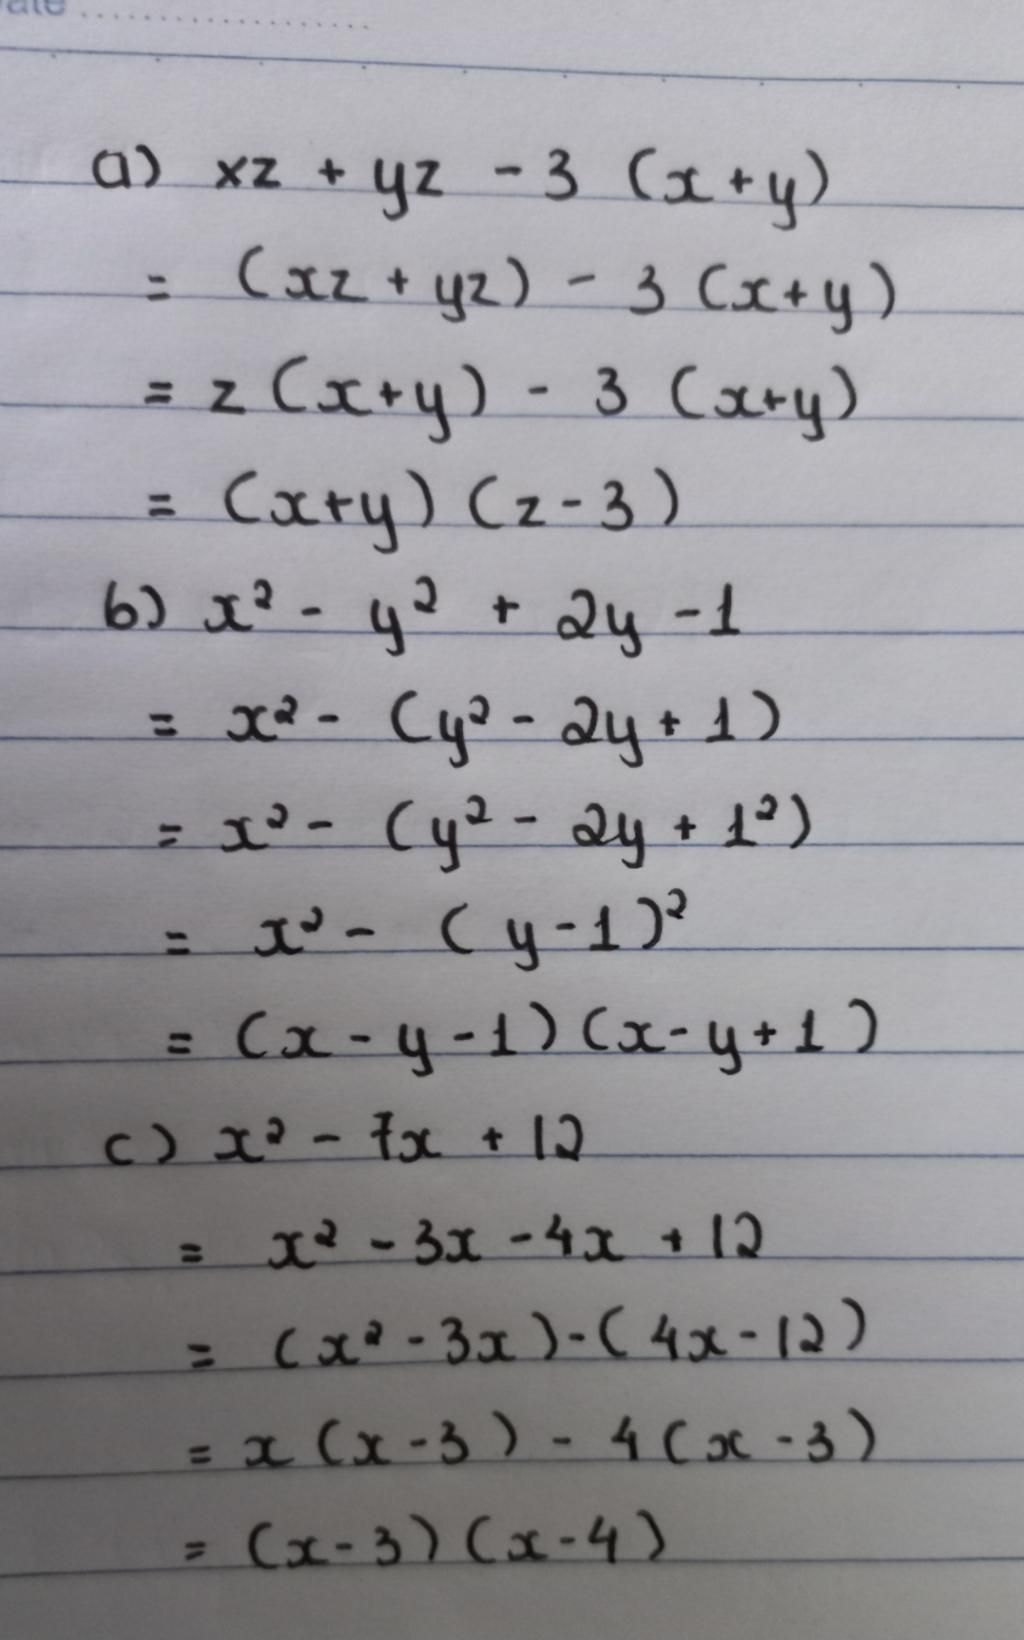 a) xz + yz - 3 (x+y)
= (xz + yz) - 3 (x+y)
= z (x+y) - 3 (x+y)
= (x+y) (z-3)
b) x² - y² + 2y - 1
= x² - (y² - 2y + 1)
= x² - (y² - 2y + 1²)
= x² - (y-1)²
= (x - y - 1) (x - y + 1)
c) x² - 7x + 12
= x² - 3x - 4x + 12
= (x² - 3x) - (4x - 12)
= x (x - 3) - 4 (x - 3)
= (x - 3) (x - 4)